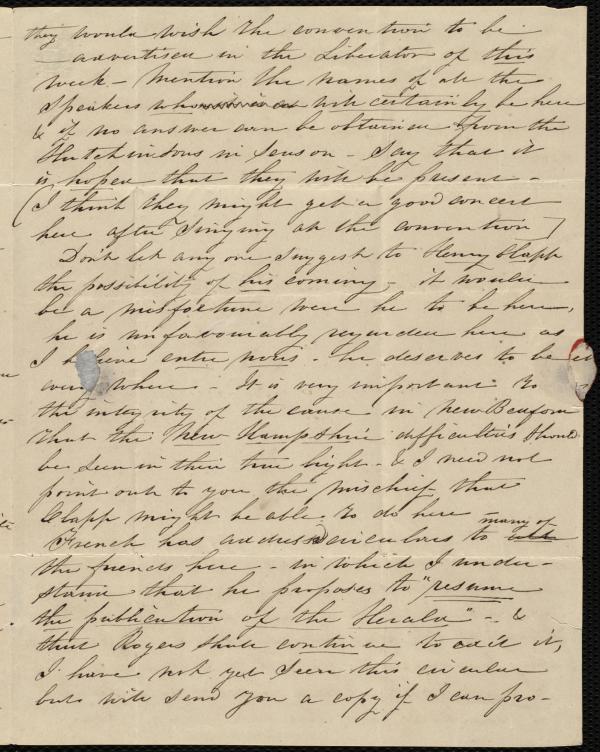 they would wish the convention to be
advertised in the Liberator of this
week - mention the names of all the
Speakers who will certainly be here
& if no answer can be obtained from the
Hutchinsons in season - Say that it
is hoped that they will be present -
(I think they might get a good concert
here after singing at the convention)
Dont let any one suggest to Henry Clapp
the possibility of his coming - it would
be a misfortune were he to be here,
he is unfavourably regarded here as
I believe entre nous he deserves to be
every where - It is very important to
the integrity of the cause in New Bedford
that the New Hampshire difficulties should
be seen in their true light - & I need not
point out to you the mischief that
Clapp might be able to do here
French has address'd circulars to many of
the friends here - in which I under-
stand that he proposes to "resume
the publication of the Herald" - &
that Rogers shall continue to edit it,
I have not yet seen this circular
but will send you a copy if I can pro-